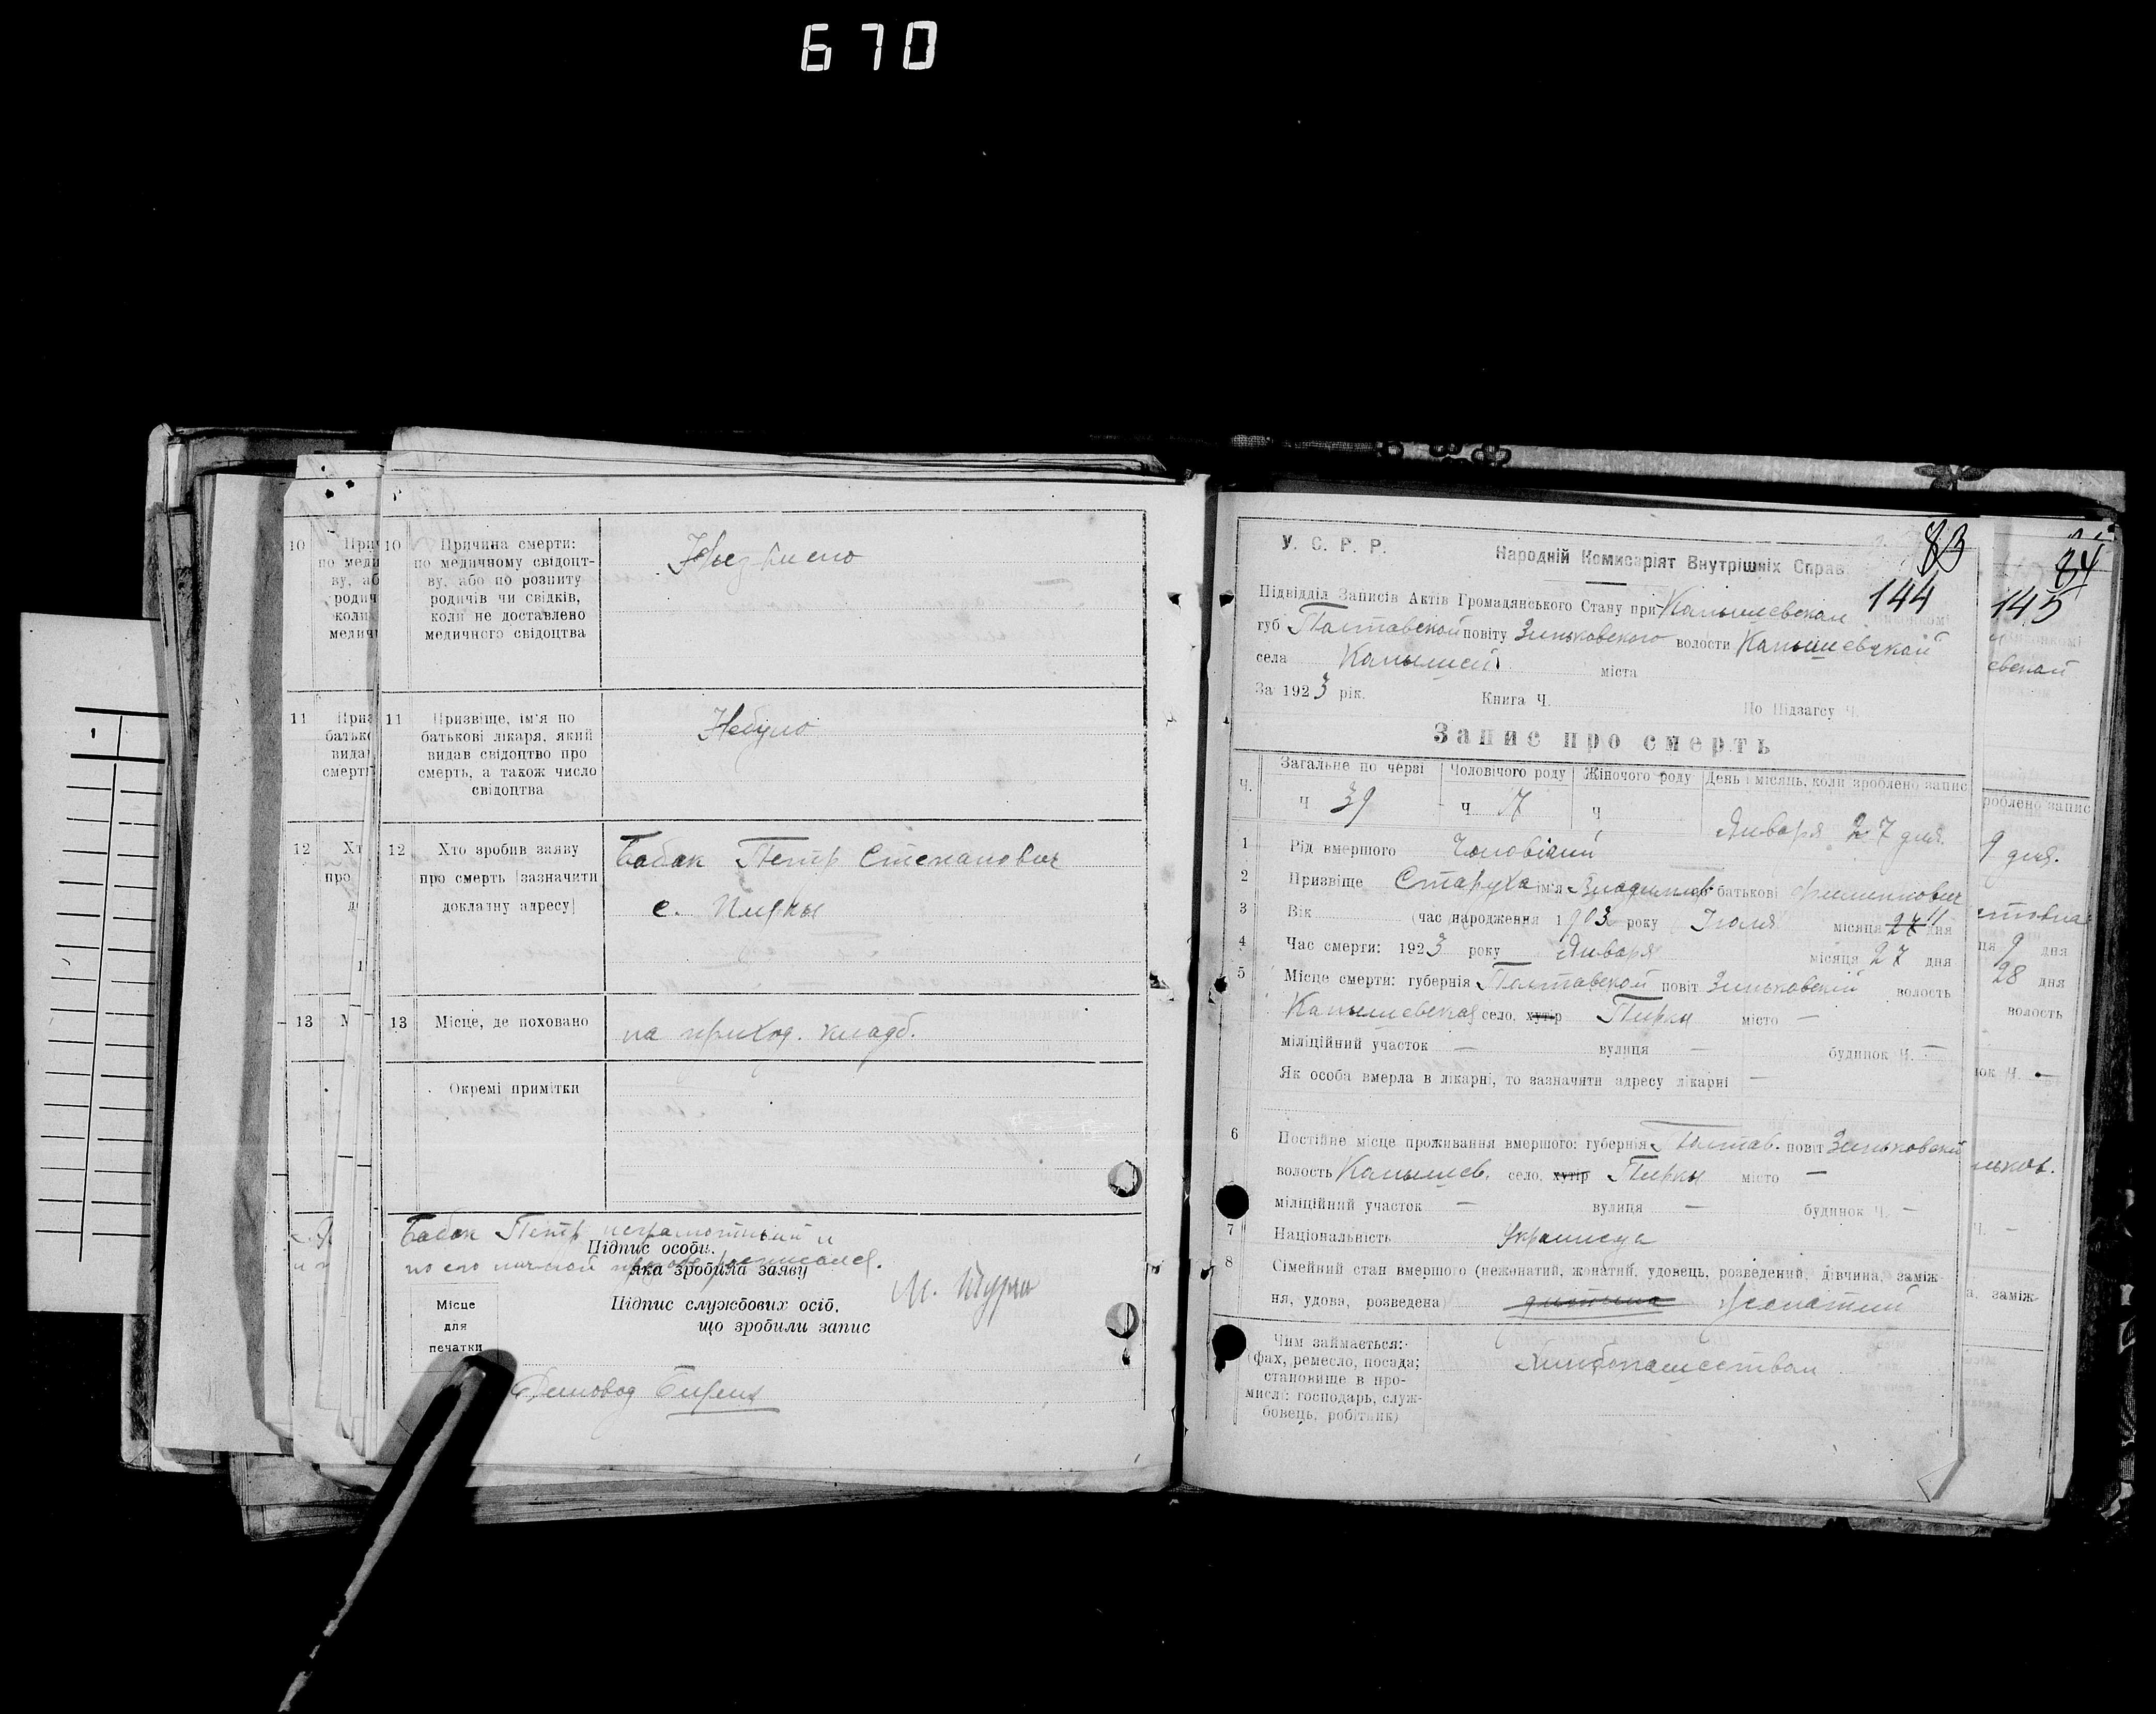 670
10 Причина смерти:
по медичному свідоцт-
ву, або по розпиту
родичів чи свідків,
коли не доставлено
медичного свідоцтва
11 Призвіще, ім'я по
батькові лікаря, який
видав свідоцтво про
смерть, а також число
свідоцтва
Небуло
12 Хто зробив заяву
про смерть (зазначити
докладну адресу)
Бабак Петр Степанович
с. Пирки
13 Місце, де поховано
на приход. кладб.
Окремі примітки
Бабак Петр неграмотный и
Підпис особи,
по его личной просьбе росписался.
яка зробила заяву
Підпис службових осіб,
що зробили запис
Місце
для
печатки
Деловод
83
У. С. Р. Р.
Народній Комисаріят Внутрішніх Справ
144
Підвідділ Записів Актів Громадянського Стану при Камышевском
губ Полтавской повіту Зиньковского волости Камышевской
села Камыши міста
За 1923 рік. Книга Ч. По Підзагсу Ч.
Запис про смерть
Ч. Загальне по черзі Чоловічого роду Жіночого роду День і місяць, коли зроблено запис
Ч 39 Ч 17 Ч Января 27 дня.
1 Рід вмершого Чоловічий
2 Призвіще Старуха ім'я Владимир по батькові Филиппович
3 Вік (час народження 1903 року Июля місяця 27 11 дня
4 Час смерти: 1923 року Января місяця 27 дня
5 Місце смерти: губернія Полтавской повіт Зиньковский волость
Камышевская село, хутір Пирки місто —
міліційний участок — вулиця — будинок Ч. —
Як особа вмерла в лікарні, то зазначити адресу лікарні —
6 Постійне місце проживання вмершого: губернія Полтав. повіт Зиньковский
волость Камышев. село, хутір Пирки місто —
міліційний участок — вулиця — будинок Ч. —
7 Національність Украинец
8 Сімейний стан вмершого (нежонатий, жонатий, удовець, розведений, дівчина, заміж-
ня, удова, розведена) дитина жонатий
Чим займається:
(фах, ремесло, посада;
становище в про-
мислі: господарь, служ-
бовець, робітник)
Хлибопашеством
84
145
евской
роблено запис
9 дня.
ця 9 дня
28 дня
волость
ок Ч. —
ьков.
Ч. —
а, заміж-